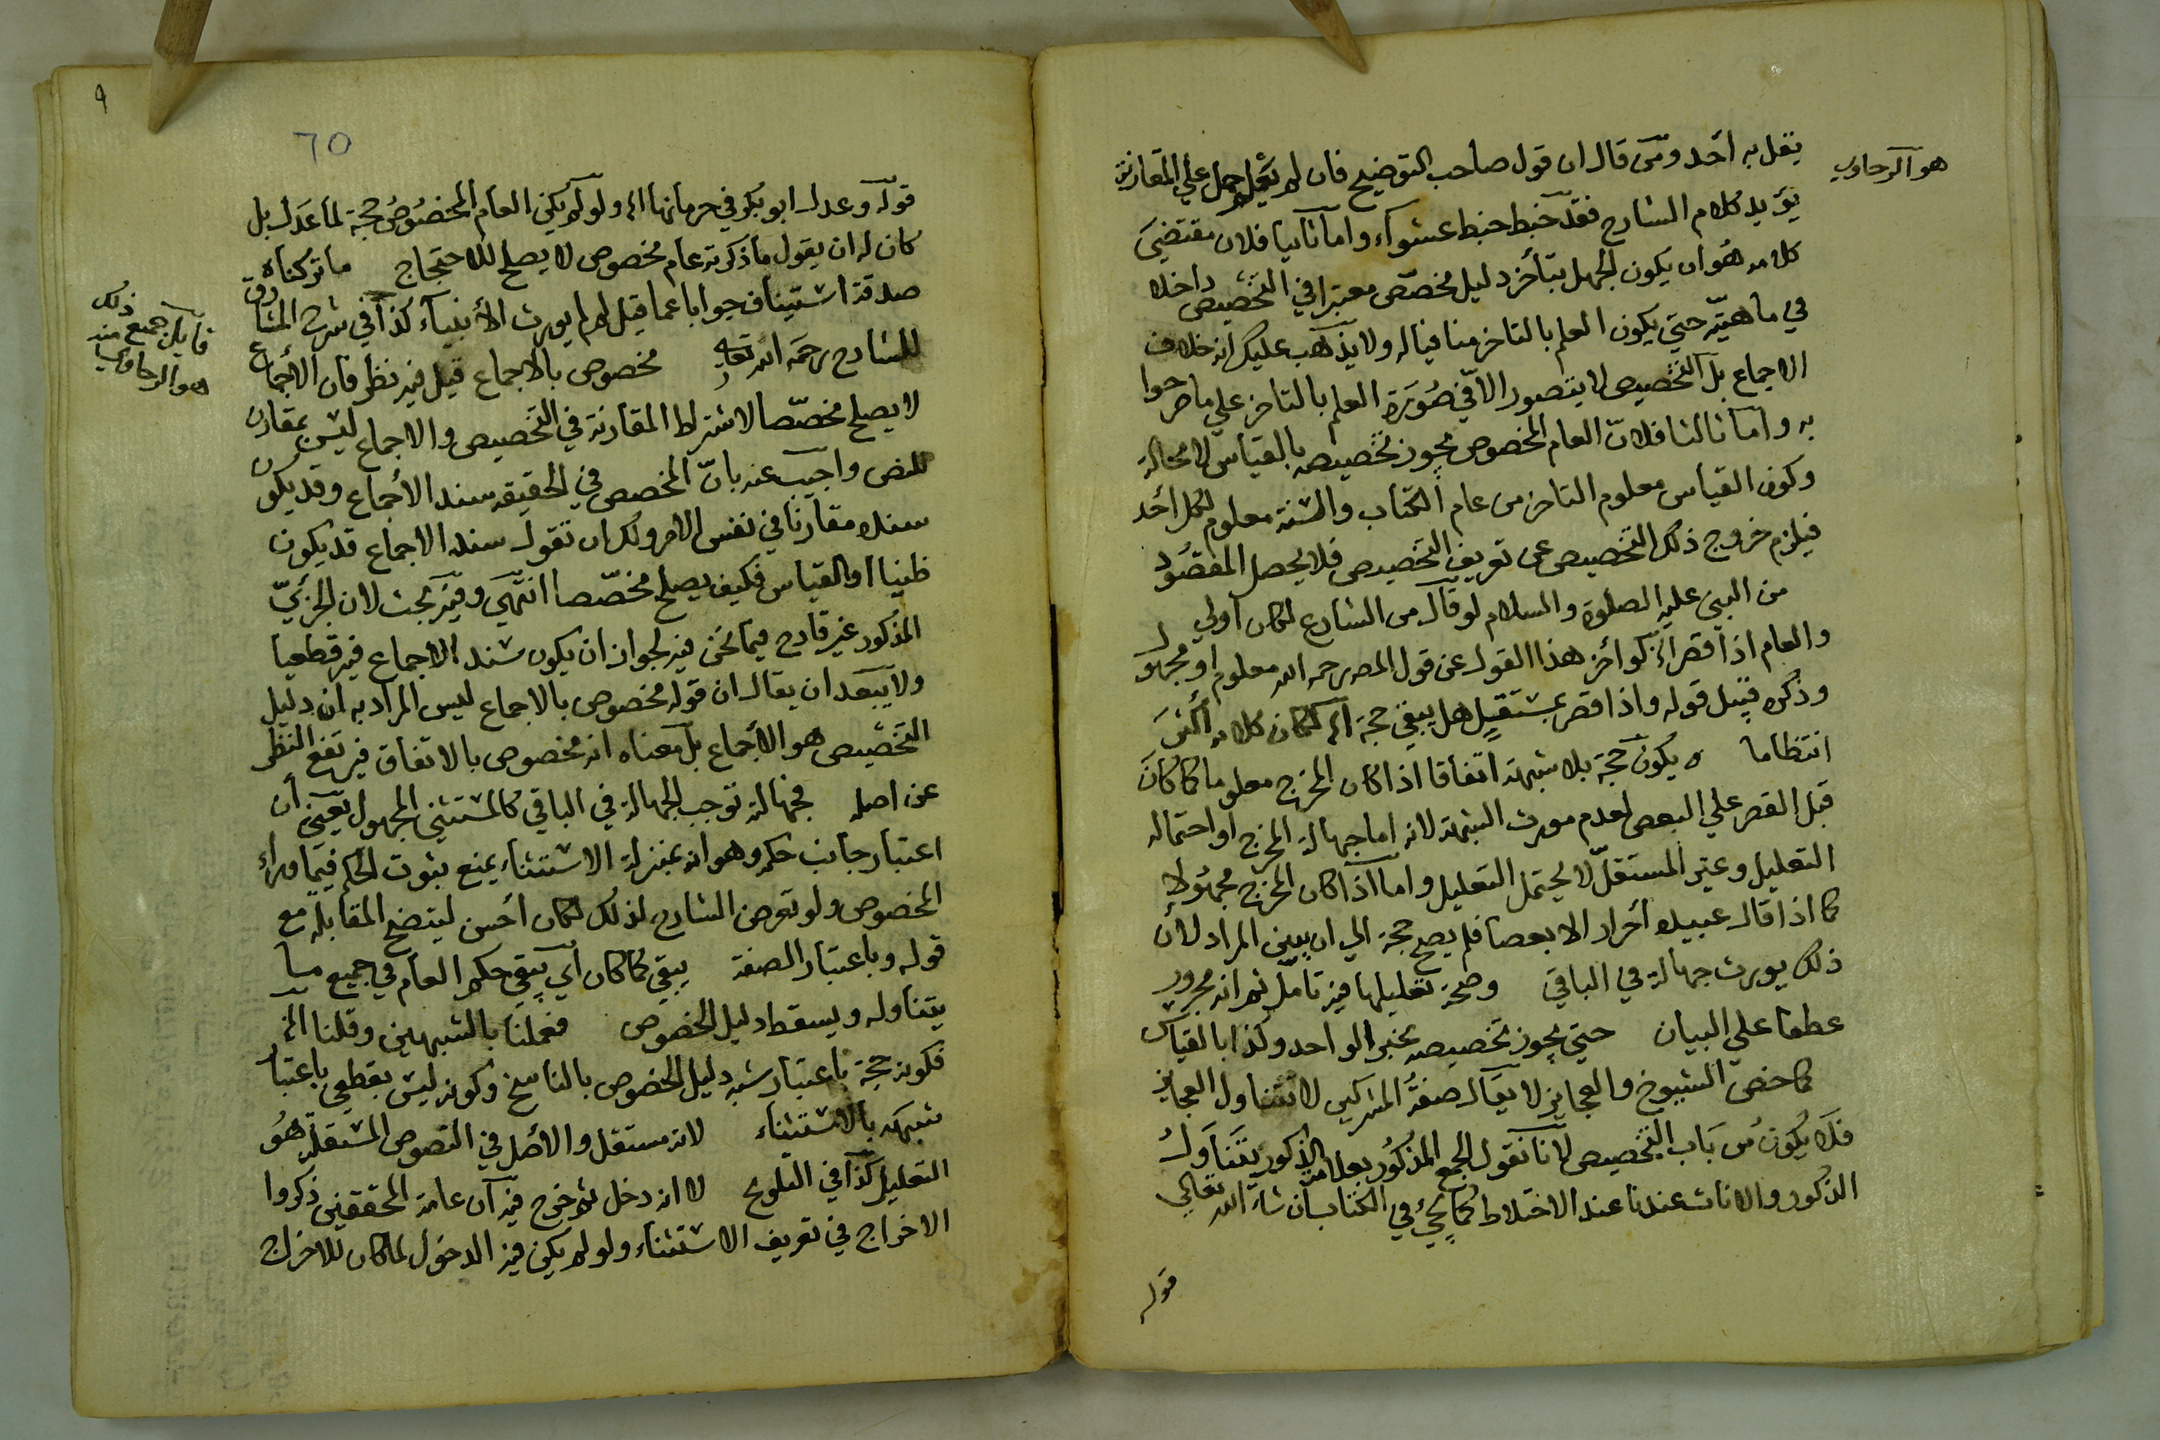 يقل به أحد ومن قال ان قول صاحب التوضيح فان لم يعلم حمل علي المقارنة
هو الرهاوي
يؤيد كلام الشارح فقد خبط خبط عشوآء واما ثانيا فلان مقتضي
كلامه هو ان يكون الجهل بتأخر دليل مخصص معتبرا في التخصيص داخلا
في ماهيته حتي يكون العلم بالتاخر منافيا له ولا يذهب عليك انه خلاف
الاجماع بل التخصيص لا يتصور الا في صورة العلم بالتاخر علي ما صرحوا
به واما ثالثا فلان العام المخصوص يجوز تخصيصه بالقياس لا محالة
وكون القياس معلوم التاخر من عام الكتاب والسنة معلوم لكل أحد
فيلزم خروج ذلك التخصيص عن تعريف التخصيص فلا يحصل المقصود
من النبي عليه الصلوة والسلام لو قال من الشارع لكان أولي
والعام اذا قصر الخ لو أخر هذا القول عن قول المص رحمه الله معلوم او مجهول
وذكره قبيل قوله واذا قصر بمستقل هل يبقي حجة الخ لكان كلامه أكثر
انتظاما يكون حجة بلا شبهة اتفاقا اذا كان المخرج معلوما كما كان
قبل القصر علي البعض لعدم مورث الشبهة لانه اما جهالة المخرج او احتماله
التعليل وغير المستقل لا يحتمل التعليل واما اذا كان المخرج مجهولا
كما اذا قال عبيده أحرار الا بعضا فلم يصح حجة الي ان يبين المراد لأن
ذلك يورث جهالة في الباقي وصحة تعليلها فيه تامل ثم انه مجرور
عطفا علي البيان حتي يجوز تخصيصه بخبر الواحد وكذا بالقياس
كما خص الشيوخ والعجايز لا يقال صفة المشركين لا تتناول العجايز
فلا يكون من باب التخصيص لأنا نقول الجمع المذكور بعلامة الذكور يتناول
الذكور والاناث عندنا عند الاختلاط كما يجئ في الكتاب ان شاء الله تعالي
قوله
٩
٦٥
قوله وعدل ابو بكر في حرمانها الخ ولو لم يكن العام المخصوص حجة لما عدل بل
كان له ان يقول ما ذكرته عام مخصوص لا يصلح للاحتجاج ما تركناه
صدقة استيناف جوابا عما قيل لم لم يورث الأنبياء كذا في شرح المشارق
للشارح رحمه الله تعالي مخصوص بالاجماع قيل فيه نظر فان الاجماع
قايل جميع ذلك
هو الرهاوي
لا يصلح مخصصا لاشتراط المقارنة في التخصيص والاجماع ليس بمقارن
للنص واجيب عنه بان المخصص في الحقيقة سند الأجماع وقد يكون
سنده مقارنا في نفس الامر ولك ان تقول سند الاجماع قد يكون
ظنيا او القياس فكيف يصلح مخصصا انتهي وفيه بحث لان الجزئي
المذكور غير قادح فيما نحن فيه لجواز ان يكون سند الاجماع فيه قطعيا
ولا يبعد ان يقال ان قوله مخصوص بالاجماع ليس المراد به ان دليل
التخصيص هو الأجماع بل معناه انه مخصوص بالاتفاق فيرتفع النظر
عن اصله فجهالته توجب الجهالة في الباقي كالمستثني المجهول يعني أن
اعتبار جانب حكمه وهو انه بمنزلة الاستثناء يمنع ثبوت الحكم فيما وراء
المخصوص ولو تعرض الشارح لذلك لكان أحسن ليتضح المقابلة مع
قوله وباعتبار الصفة يبقي كما كان أي يبقي حكم العام في جميع ما
يتناوله ويسقط دليل الخصوص فعملنا بالشبهين وقلنا الخ
فكونه حجة باعتبار شبه دليل الخصوص بالناسخ وكونه ليس بقطعي باعتبار
شبهه بالاستثناء لانه مستقل والأصل في النصوص المستقلة هو
التعليل كذا في التلويح لا انه دخل ثم خرج فيه أن عامة المحققين ذكروا
الاخراج في تعريف الاستثناء ولو لم يكن فيه الدخول لما كان للاخراج